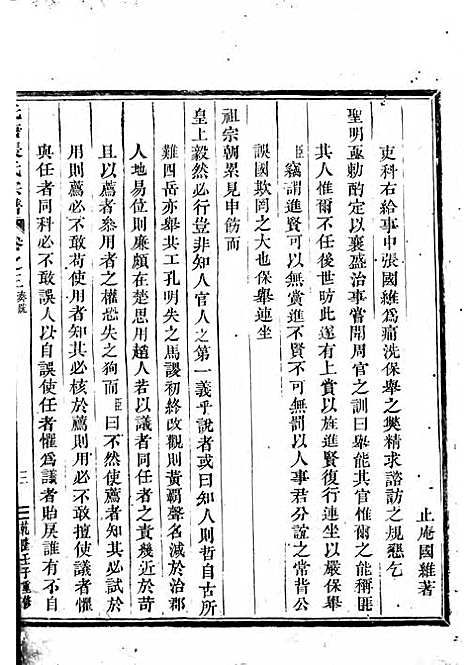 止庵國維著
吏科右給事中張國維爲痛洗保舉之獘精求諮訪之規懇乞
聖明亟勅酌定以襄盛治事嘗聞周官之訓曰舉能其官惟爾之能稱匪
其人惟爾不任後世昉此有上賞以旌進賢復行連坐以嚴保舉
臣竊謂進賢可以無賞進不賢不可無罰可以人事君分誼之常背公
誤國欺罔之大也保舉連坐
祖宗朝累見申飭而
皇上毅然必行豈非知人官人之第一義乎說者或曰知人則哲自古所
難四岳亦舉共工孔明失之馬謖初終改觀則黃覇聲名減於治郡
人地易位則廉頗在楚思用趙人若以議者同任者之責幾近於苛
且以薦者參用者之權恐失之狥而臣曰不然使薦者知其必試於
用則薦必不敢苟使用者知其必核於薦則用必不敢擅使議者懼
與任者同科必不敢誤人以自誤使任者懼爲議者貽戾誰有不自
張氏宗譜 卷之二 奏疏
三
乾隆壬子重修